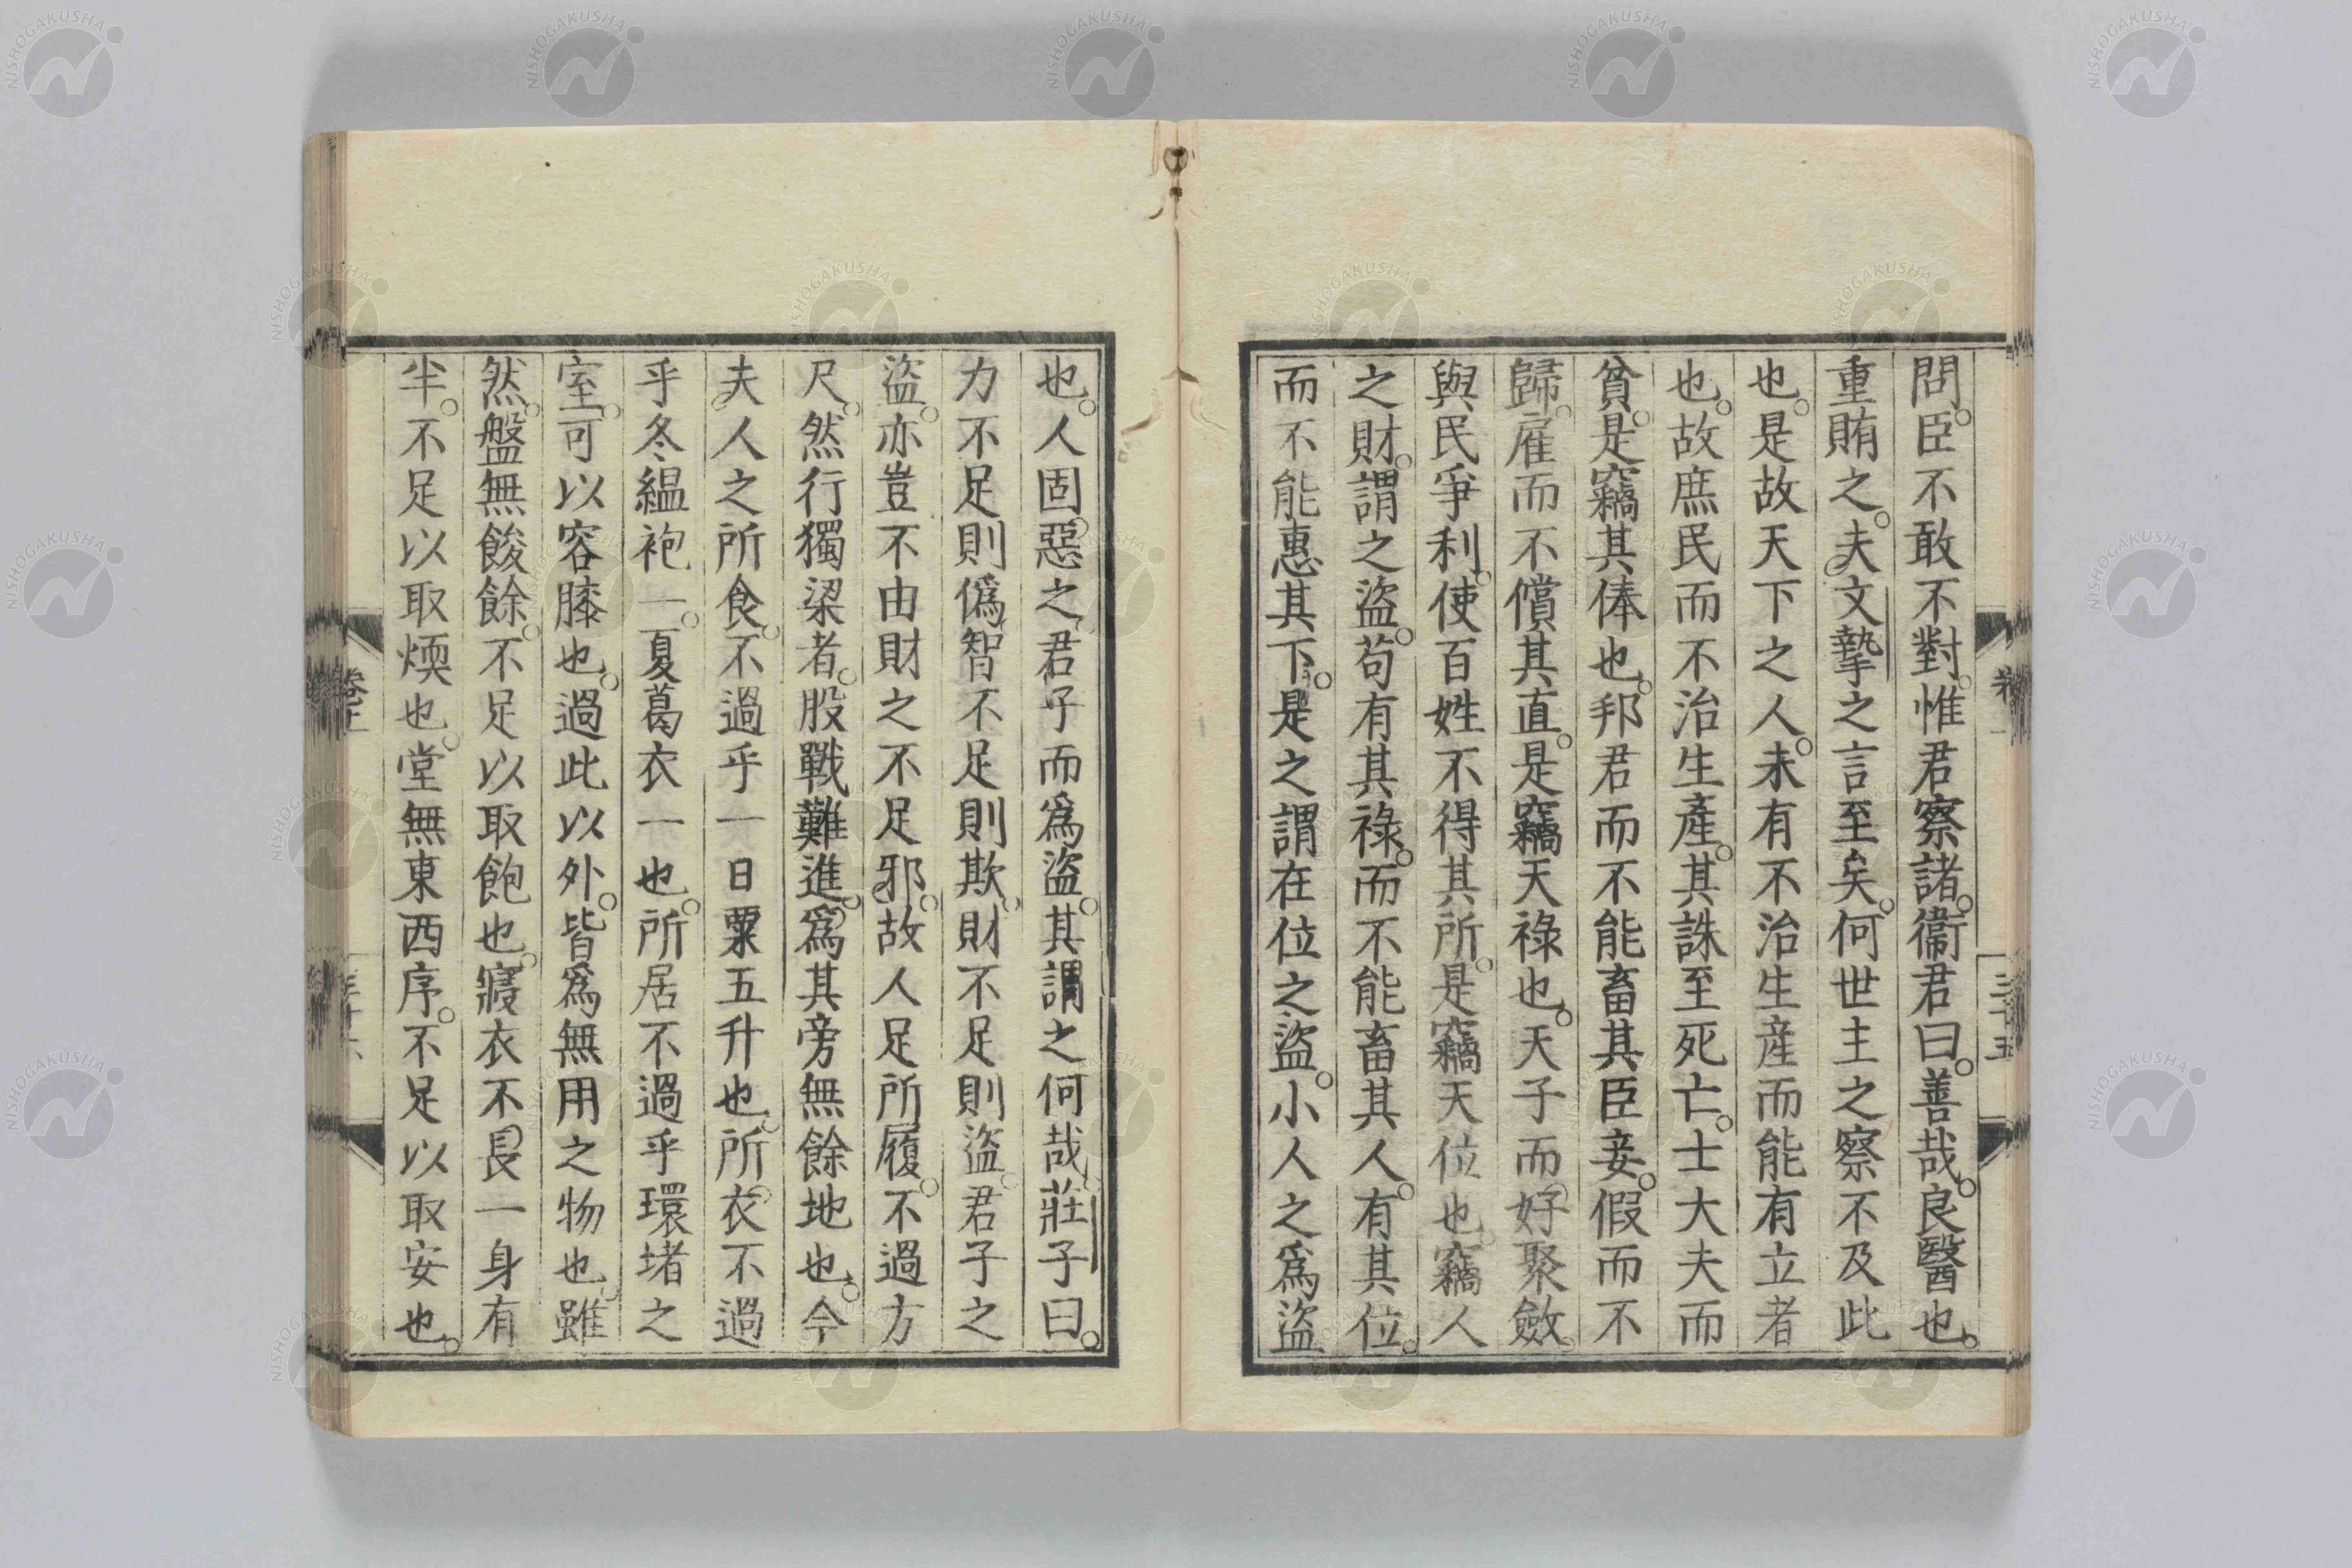 問。臣不敢不對。惟君察諸。衞君曰。善哉。良醫也。
重賄之。夫文摯之言至矣。何世主之察不及此
也。是故天下之人。未有不治生産而能有立者
也。故庶民而不治生產。其誅至死亡。士大夫而
貧。是竊其俸也。邦君而不能畜其臣妾。假而不
歸。雇而不償其直。是竊天祿也。天子而好聚斂。
與民爭利。使百姓不得其所。是竊天位也。竊人
之財。謂之盜。苟有其祿。而不能畜其人。有其位。
而不能惠其下。是之謂在位之盜。小人之爲盜
也。人固惡之。君子而爲盜。其謂之何哉。莊子曰。
力不足則僞。智不足則欺。財不足則盜。君子之
盜。亦豈不由財之不足邪。故人足所履。不過方
尺。然行獨梁者。股戰難進。爲其旁無餘地也。今
夫人之所食。不過乎一日粟五升也。所衣不過
乎冬縕袍一。夏葛衣一也。所居不過乎環堵之
室。可以容膝也。過此以外。皆爲無用之物也。雖
然。盤無餕餘。不足以取飽也。寢衣不長一身有
半。不足以取煗也。堂無東西序。不足以取安也。
三十五
NISHOGAKUSHA